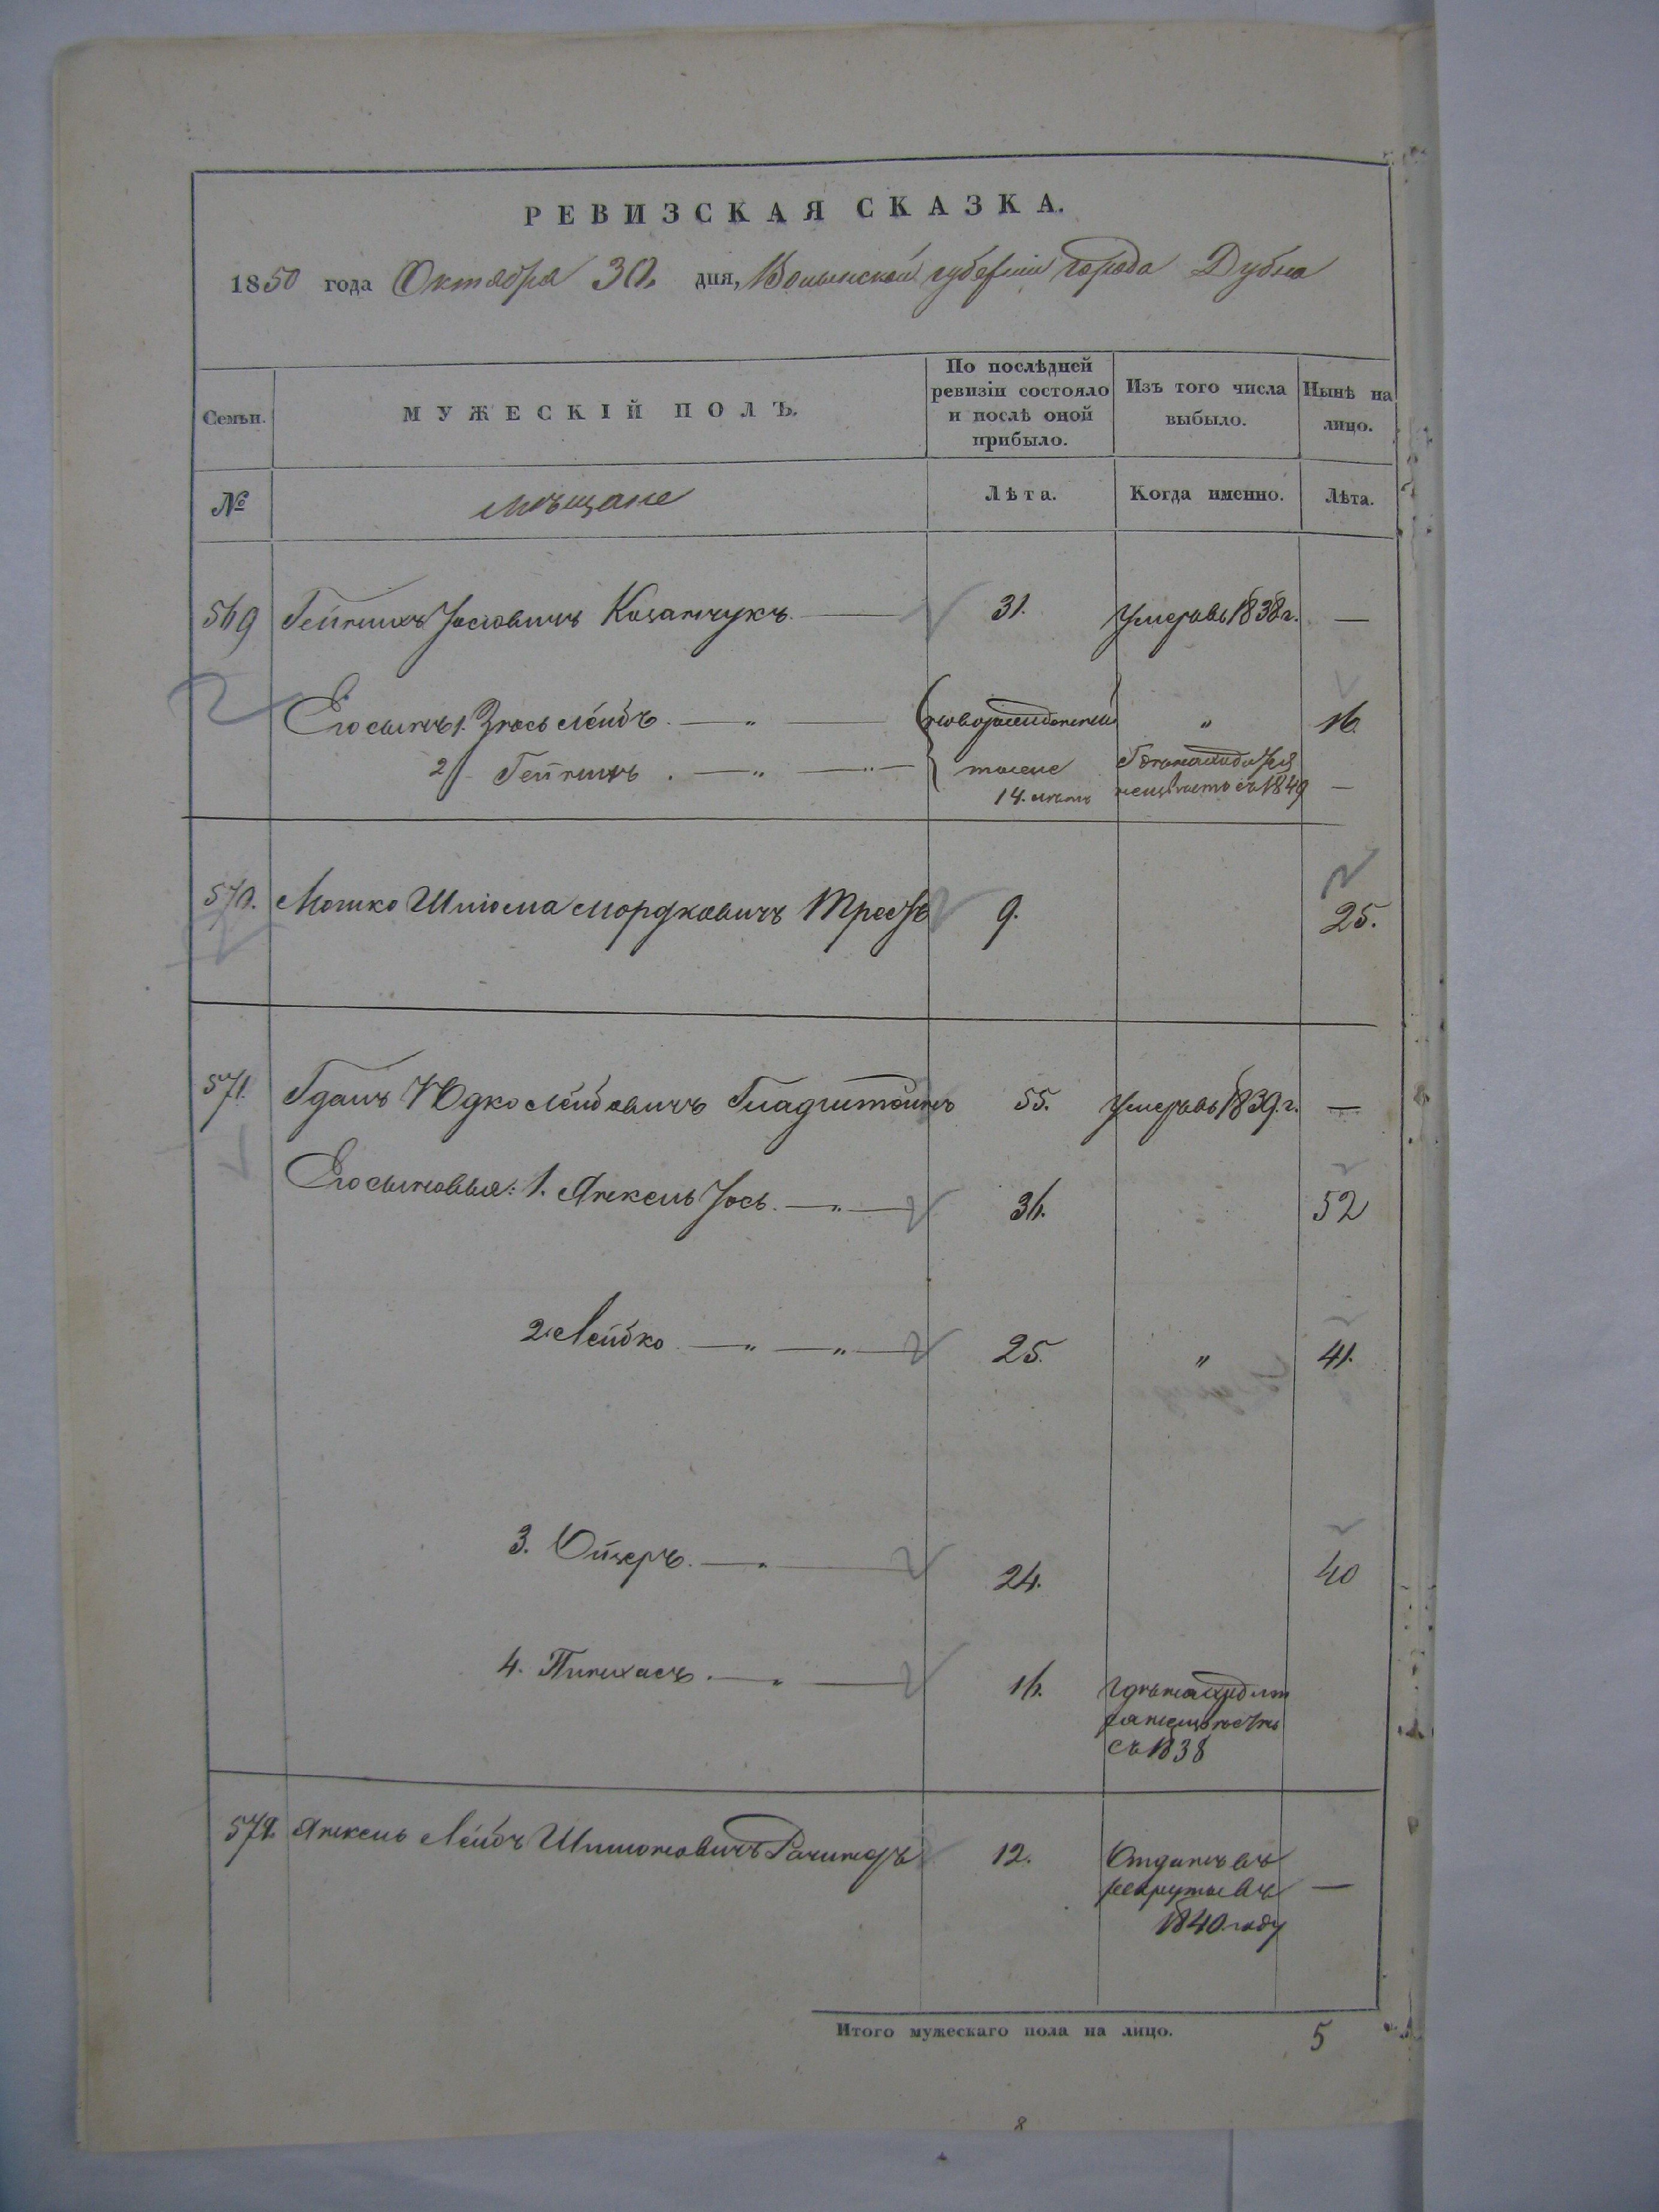 РЕВИЗСКАЯ СКАЗКА.
1850 года Октября 30. дня, Волынской губерніи города Дубна
Семьи. МУЖЕСКІЙ ПОЛЪ. По послѣдней ревизіи состояло и послѣ оной прибыло. Изъ того числа выбыло. Нынѣ на лицо.
№ мѣщане Лѣта. Когда именно. Лѣта.
569 Іосіовичъ 31. Умеръ въ 1838 г. —
Его сынъ 1. Лейбъ — " — новорожденный " 16
2 — " — " — тоже
14. лѣтъ съ 1849 —
570. Мошко Шліома Мордковичъ 9. 25.
571. Юдко Лейбовичъ 55. Умеръ въ 1839. г. —
Его сыновья: 1. Янкель Іось — " — 36. 52
2. Лейбко — " — " — 25. " 41.
3. Ойзеръ. — " — 24. 40
4. Пинхасъ. — " — 16.
съ 1838
572. Янкель Лейбъ Шліомовичъ 12. Отданъ въ
рекруты въ —
1840 году
Итого мужескаго пола на лицо. 5
8